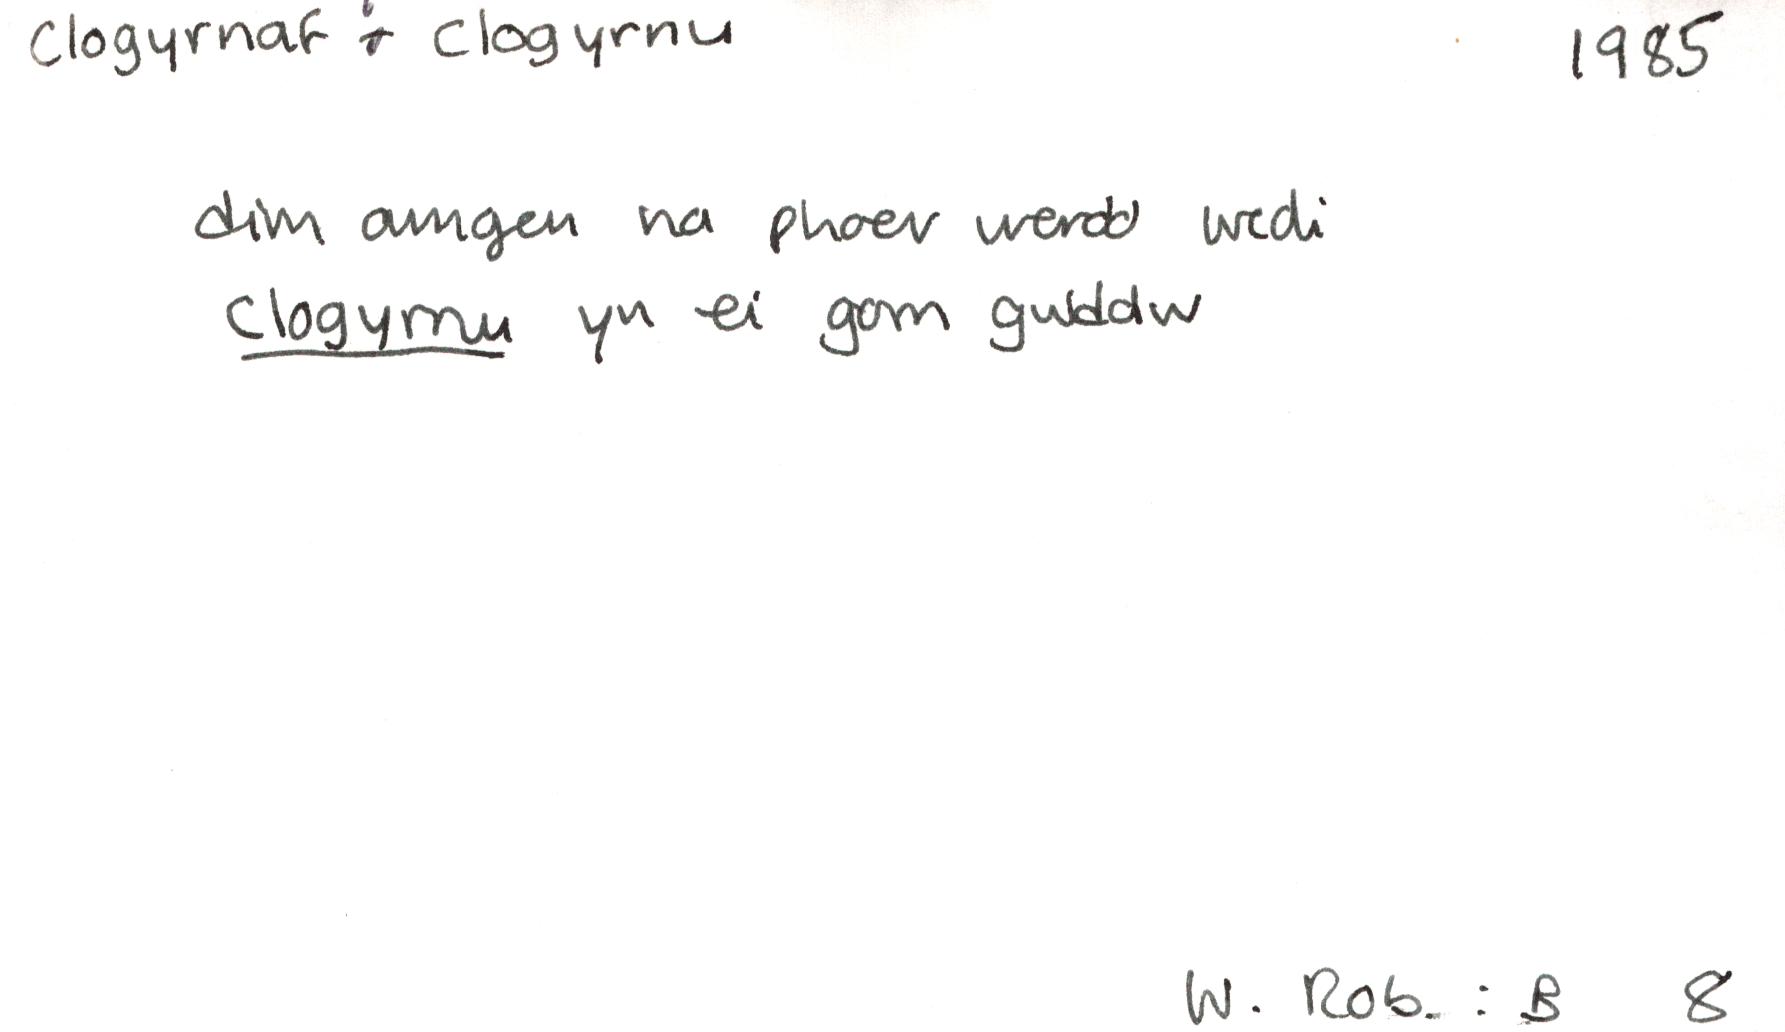 clogyrnaf : clogyrnu 1985
dim amgen na phoer werdd wedi
clogyrnu yn ei gorn gwddw
W. Rob. : B 8